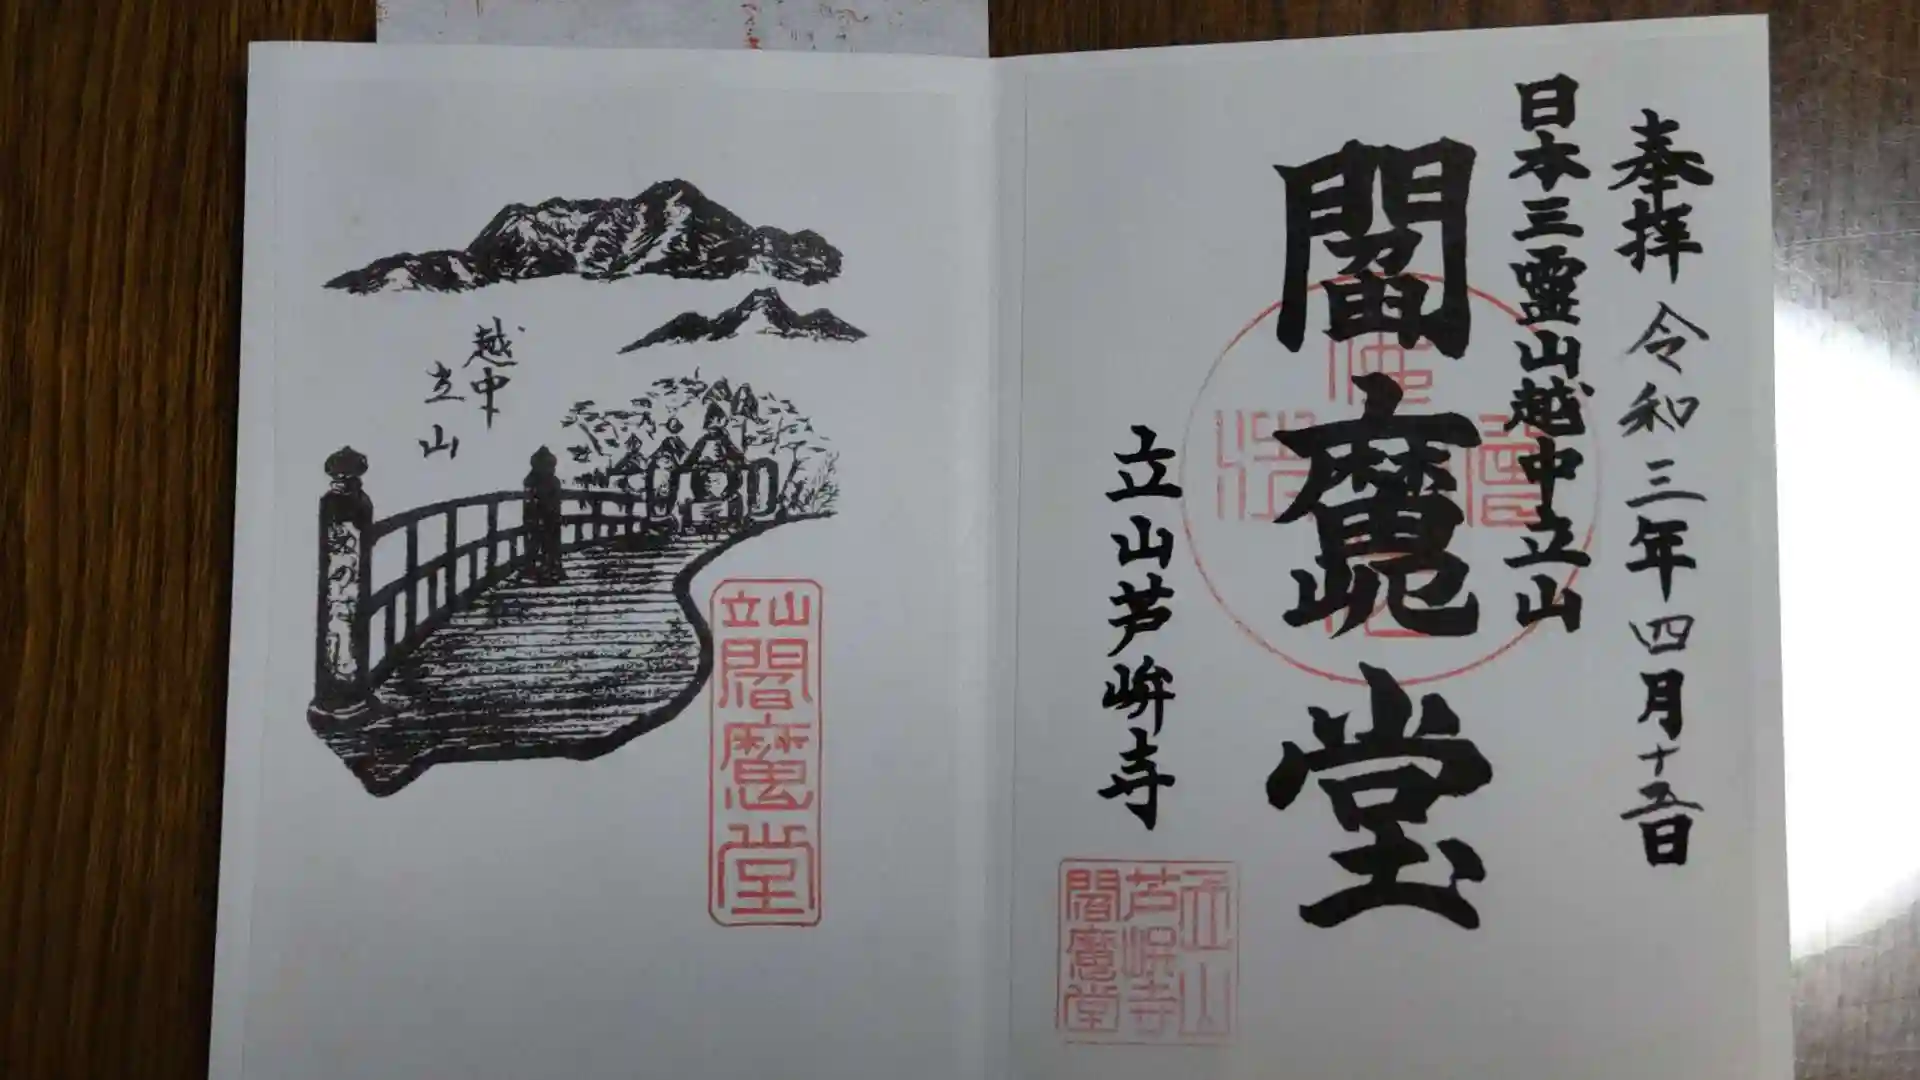 奉拝 令和三年四月十五日
日本三霊山越中立山
閻魔堂
立山芦峅寺
立山
芦峅寺
閻魔堂
越中
立山
ぬのばし
立山
閻魔堂